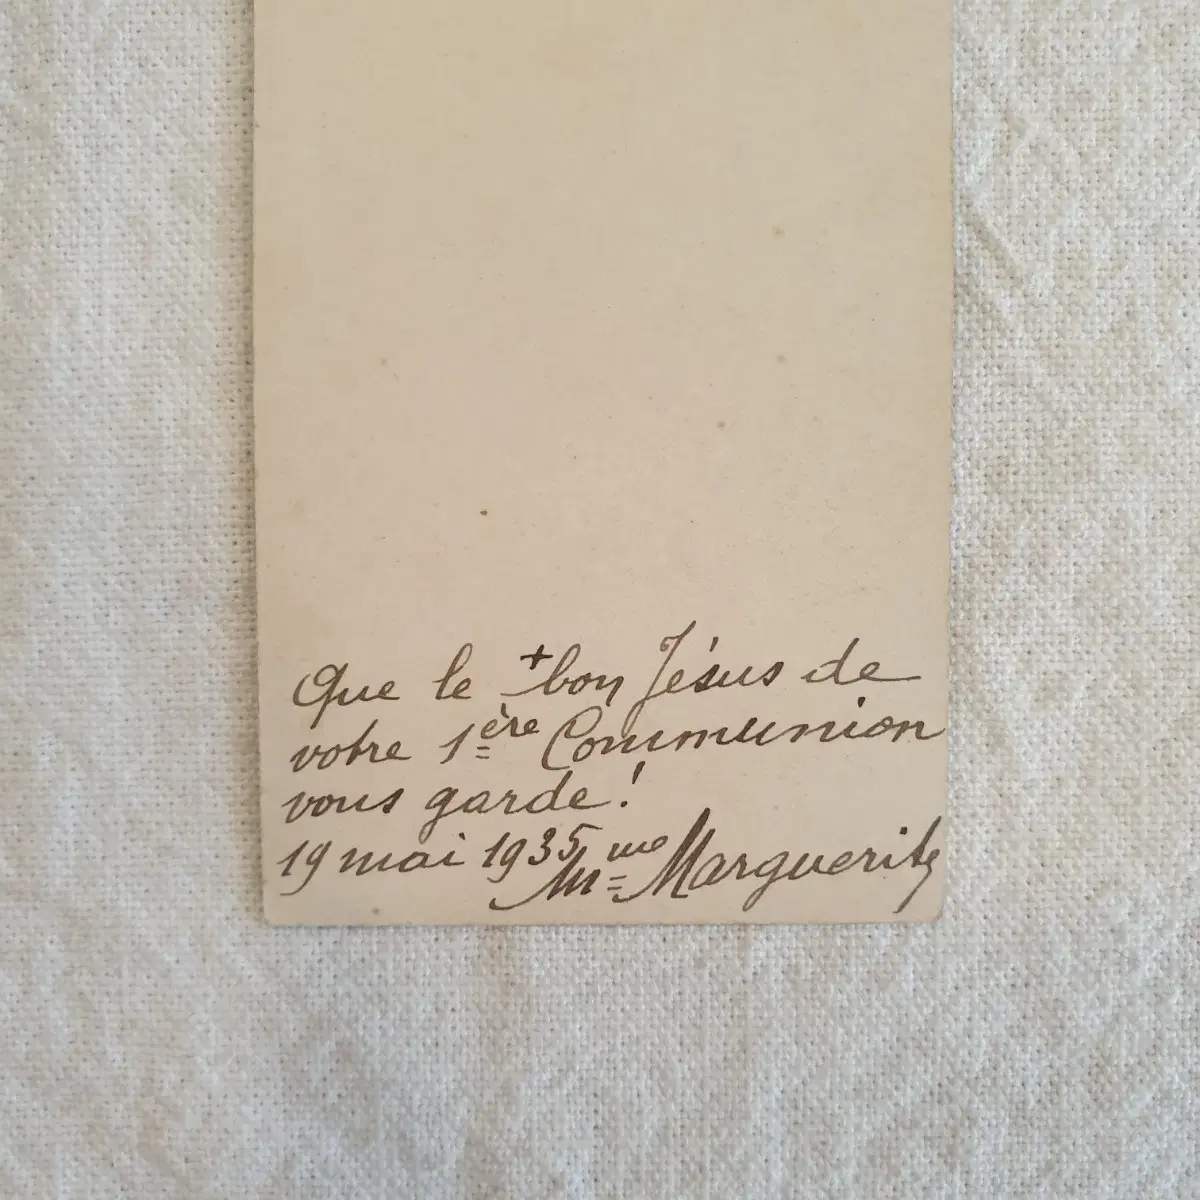 Que le + bon Jésus de
votre 1ère Communion
vous garde!
19 mai 1935 Mme Marguerite